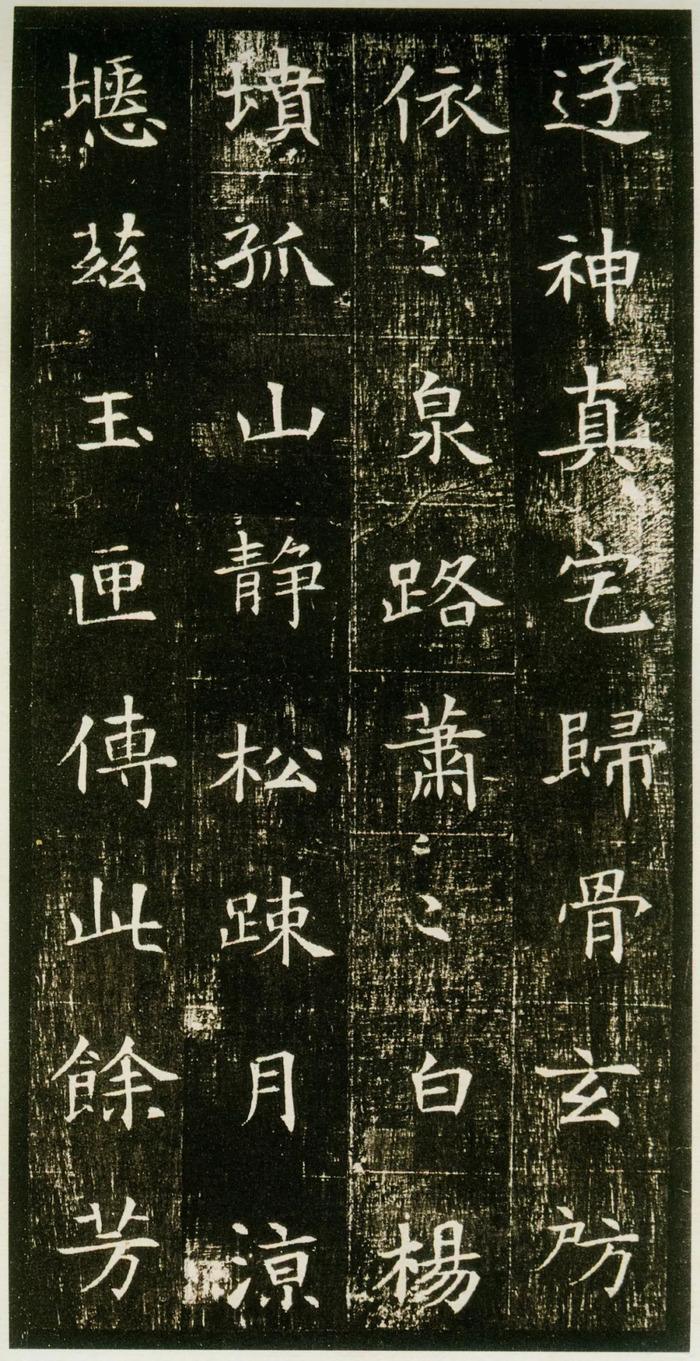 迁神真宅歸骨玄房
依〻泉路蕭〻白楊
墳孤山静松踈月涼
瘞茲玉匣傳此餘芳